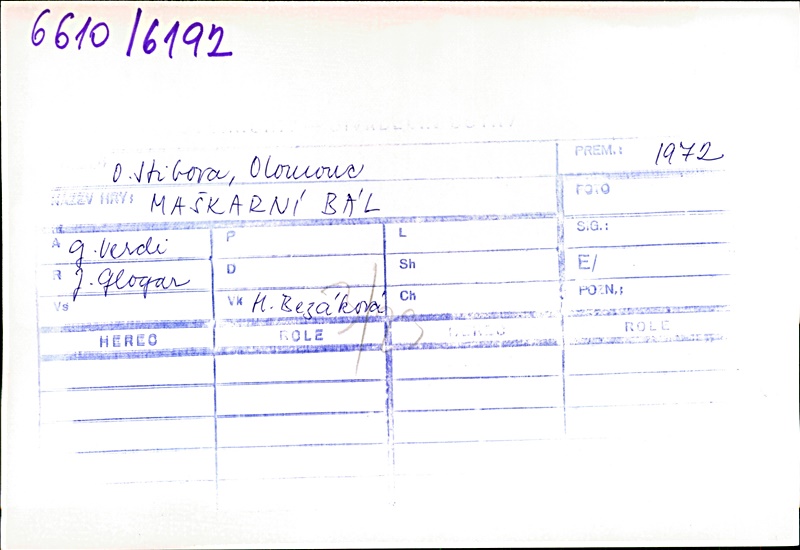 6610/6192
PREM.: 1972
O. Stibora, Olomouc
FOTO
NÁZEV HRY: MAŠKARNÍ BÁL
SIG.:
A G. Verdi P L
E/
R J. Glogar D Sh
POZN.:
Vs Vk H. Bezáková Ch
HEREC ROLE HEREC ROLE